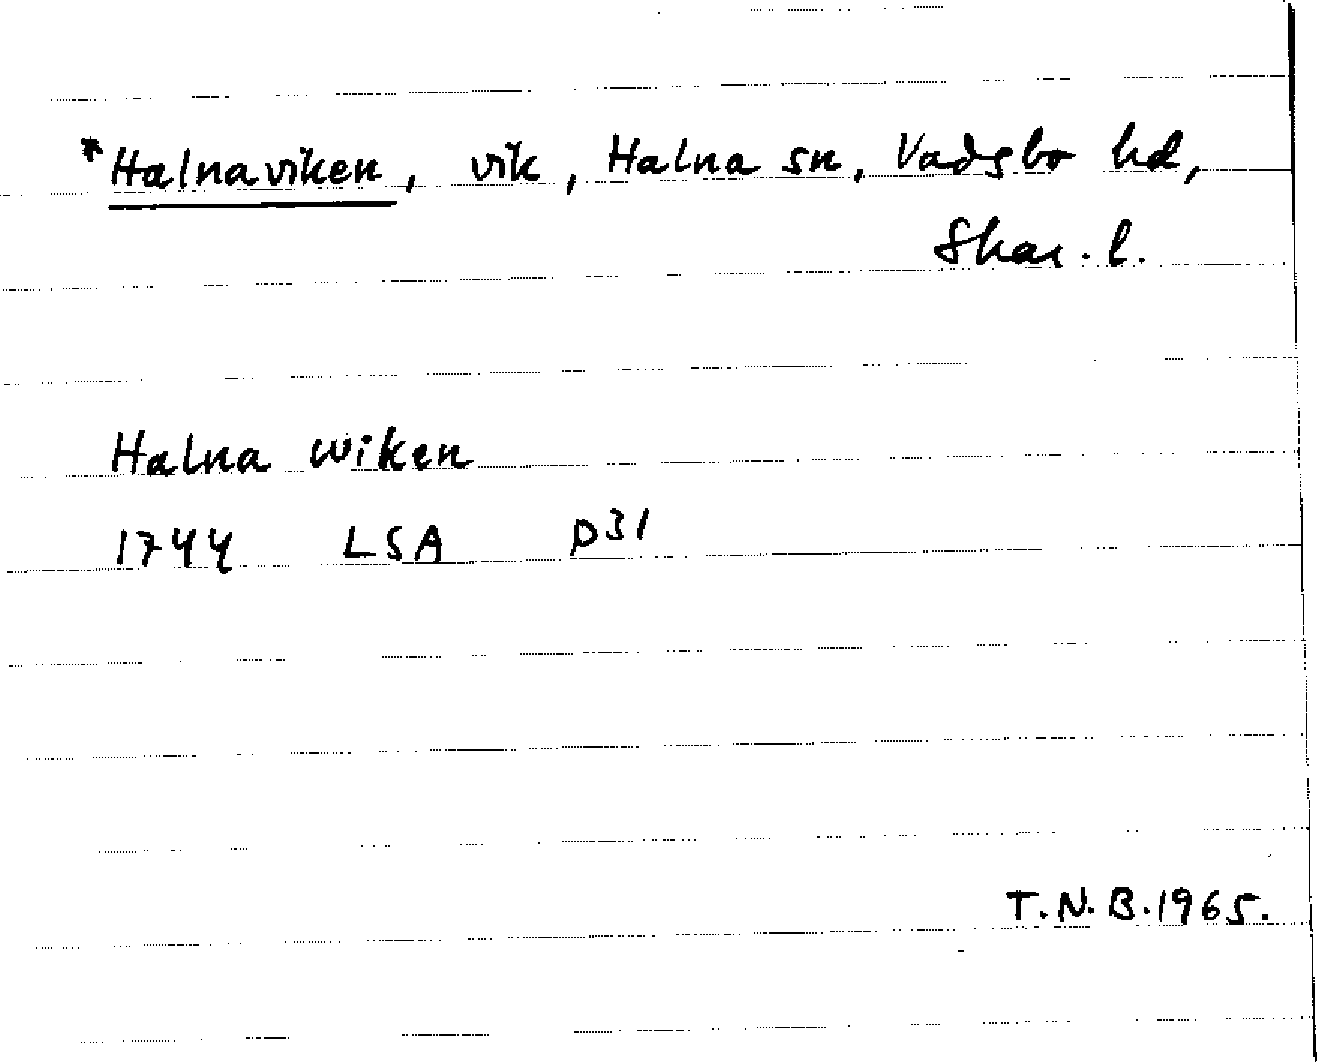 *Halnaviken, vik, Halna sn, Vadsbo hd,
Skar. l.
Halna wiken
1744 LSA P31
T.N.B.1965.